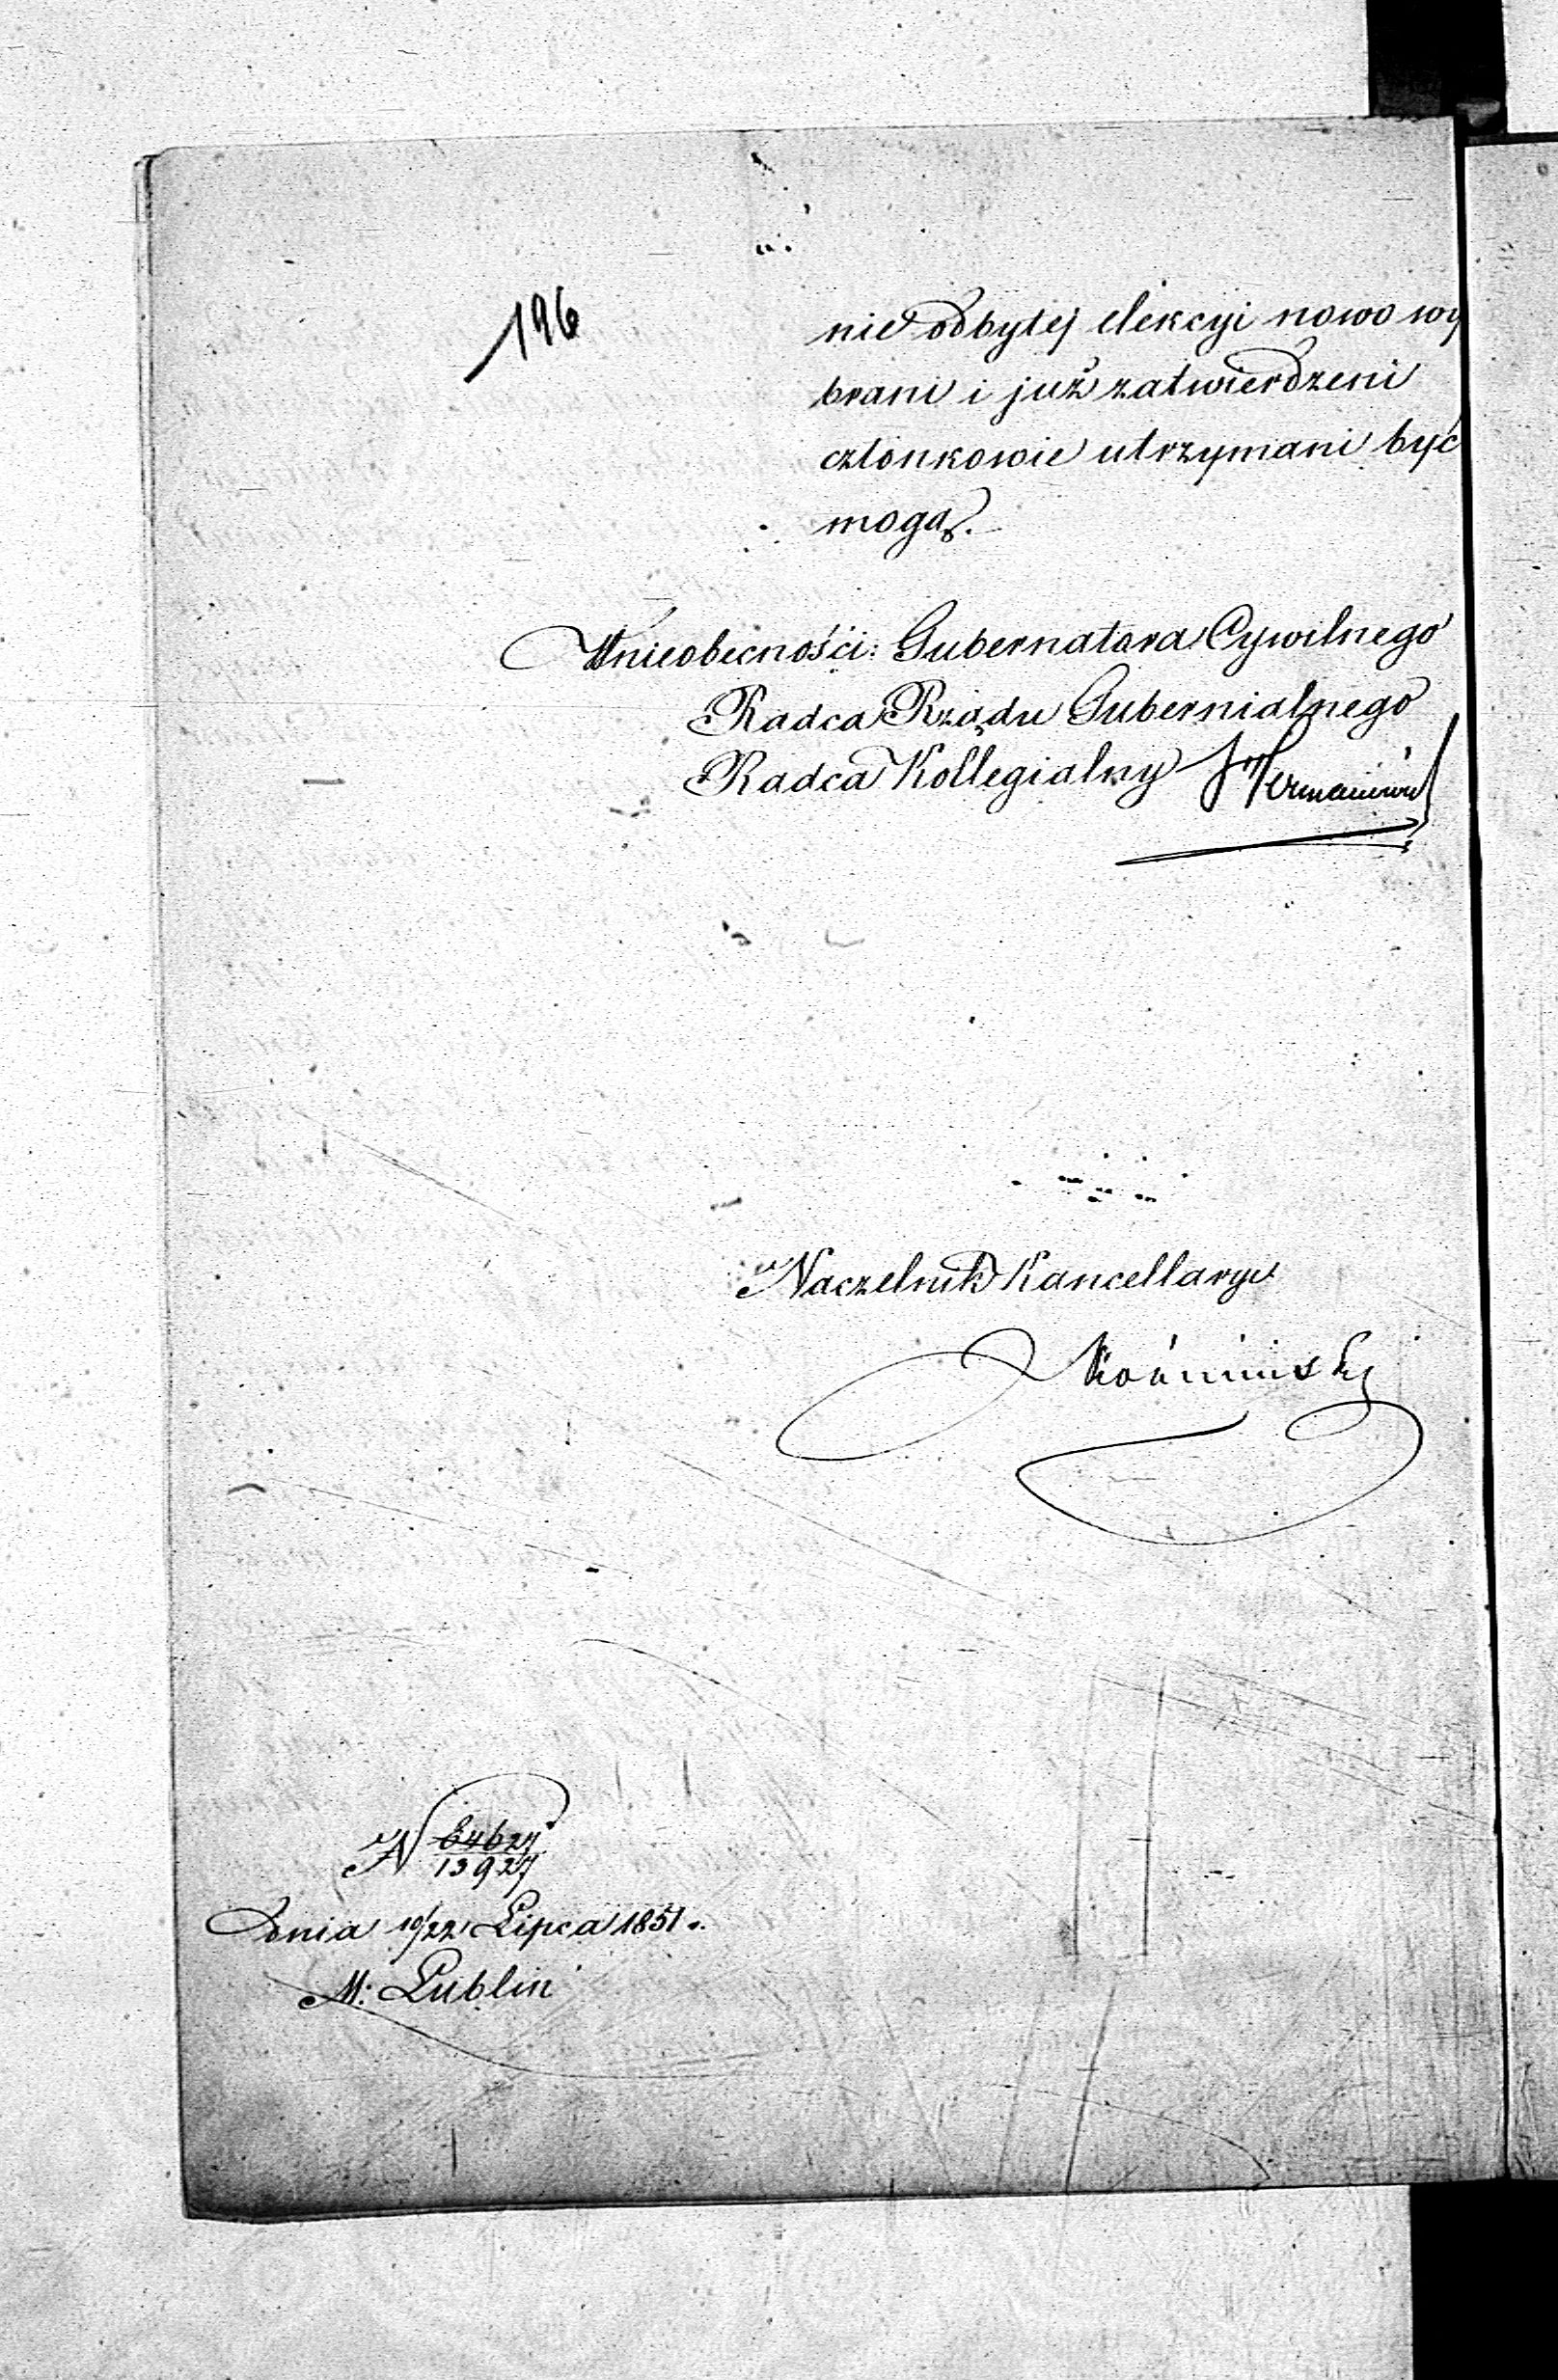 196
nie odbytej elekcyi nowo wy
brani i już zatwierdzeni
członkowie utrzymani być
mogą.
W nieobecności: Gubernatora Cywilnego
Radca Rządu Gubernialnego
Radca Kollegialny
Naczelnik Kancellaryi
N 64627
13927
Dnia 10/22 Lipca 1851 r.
M: Lublin